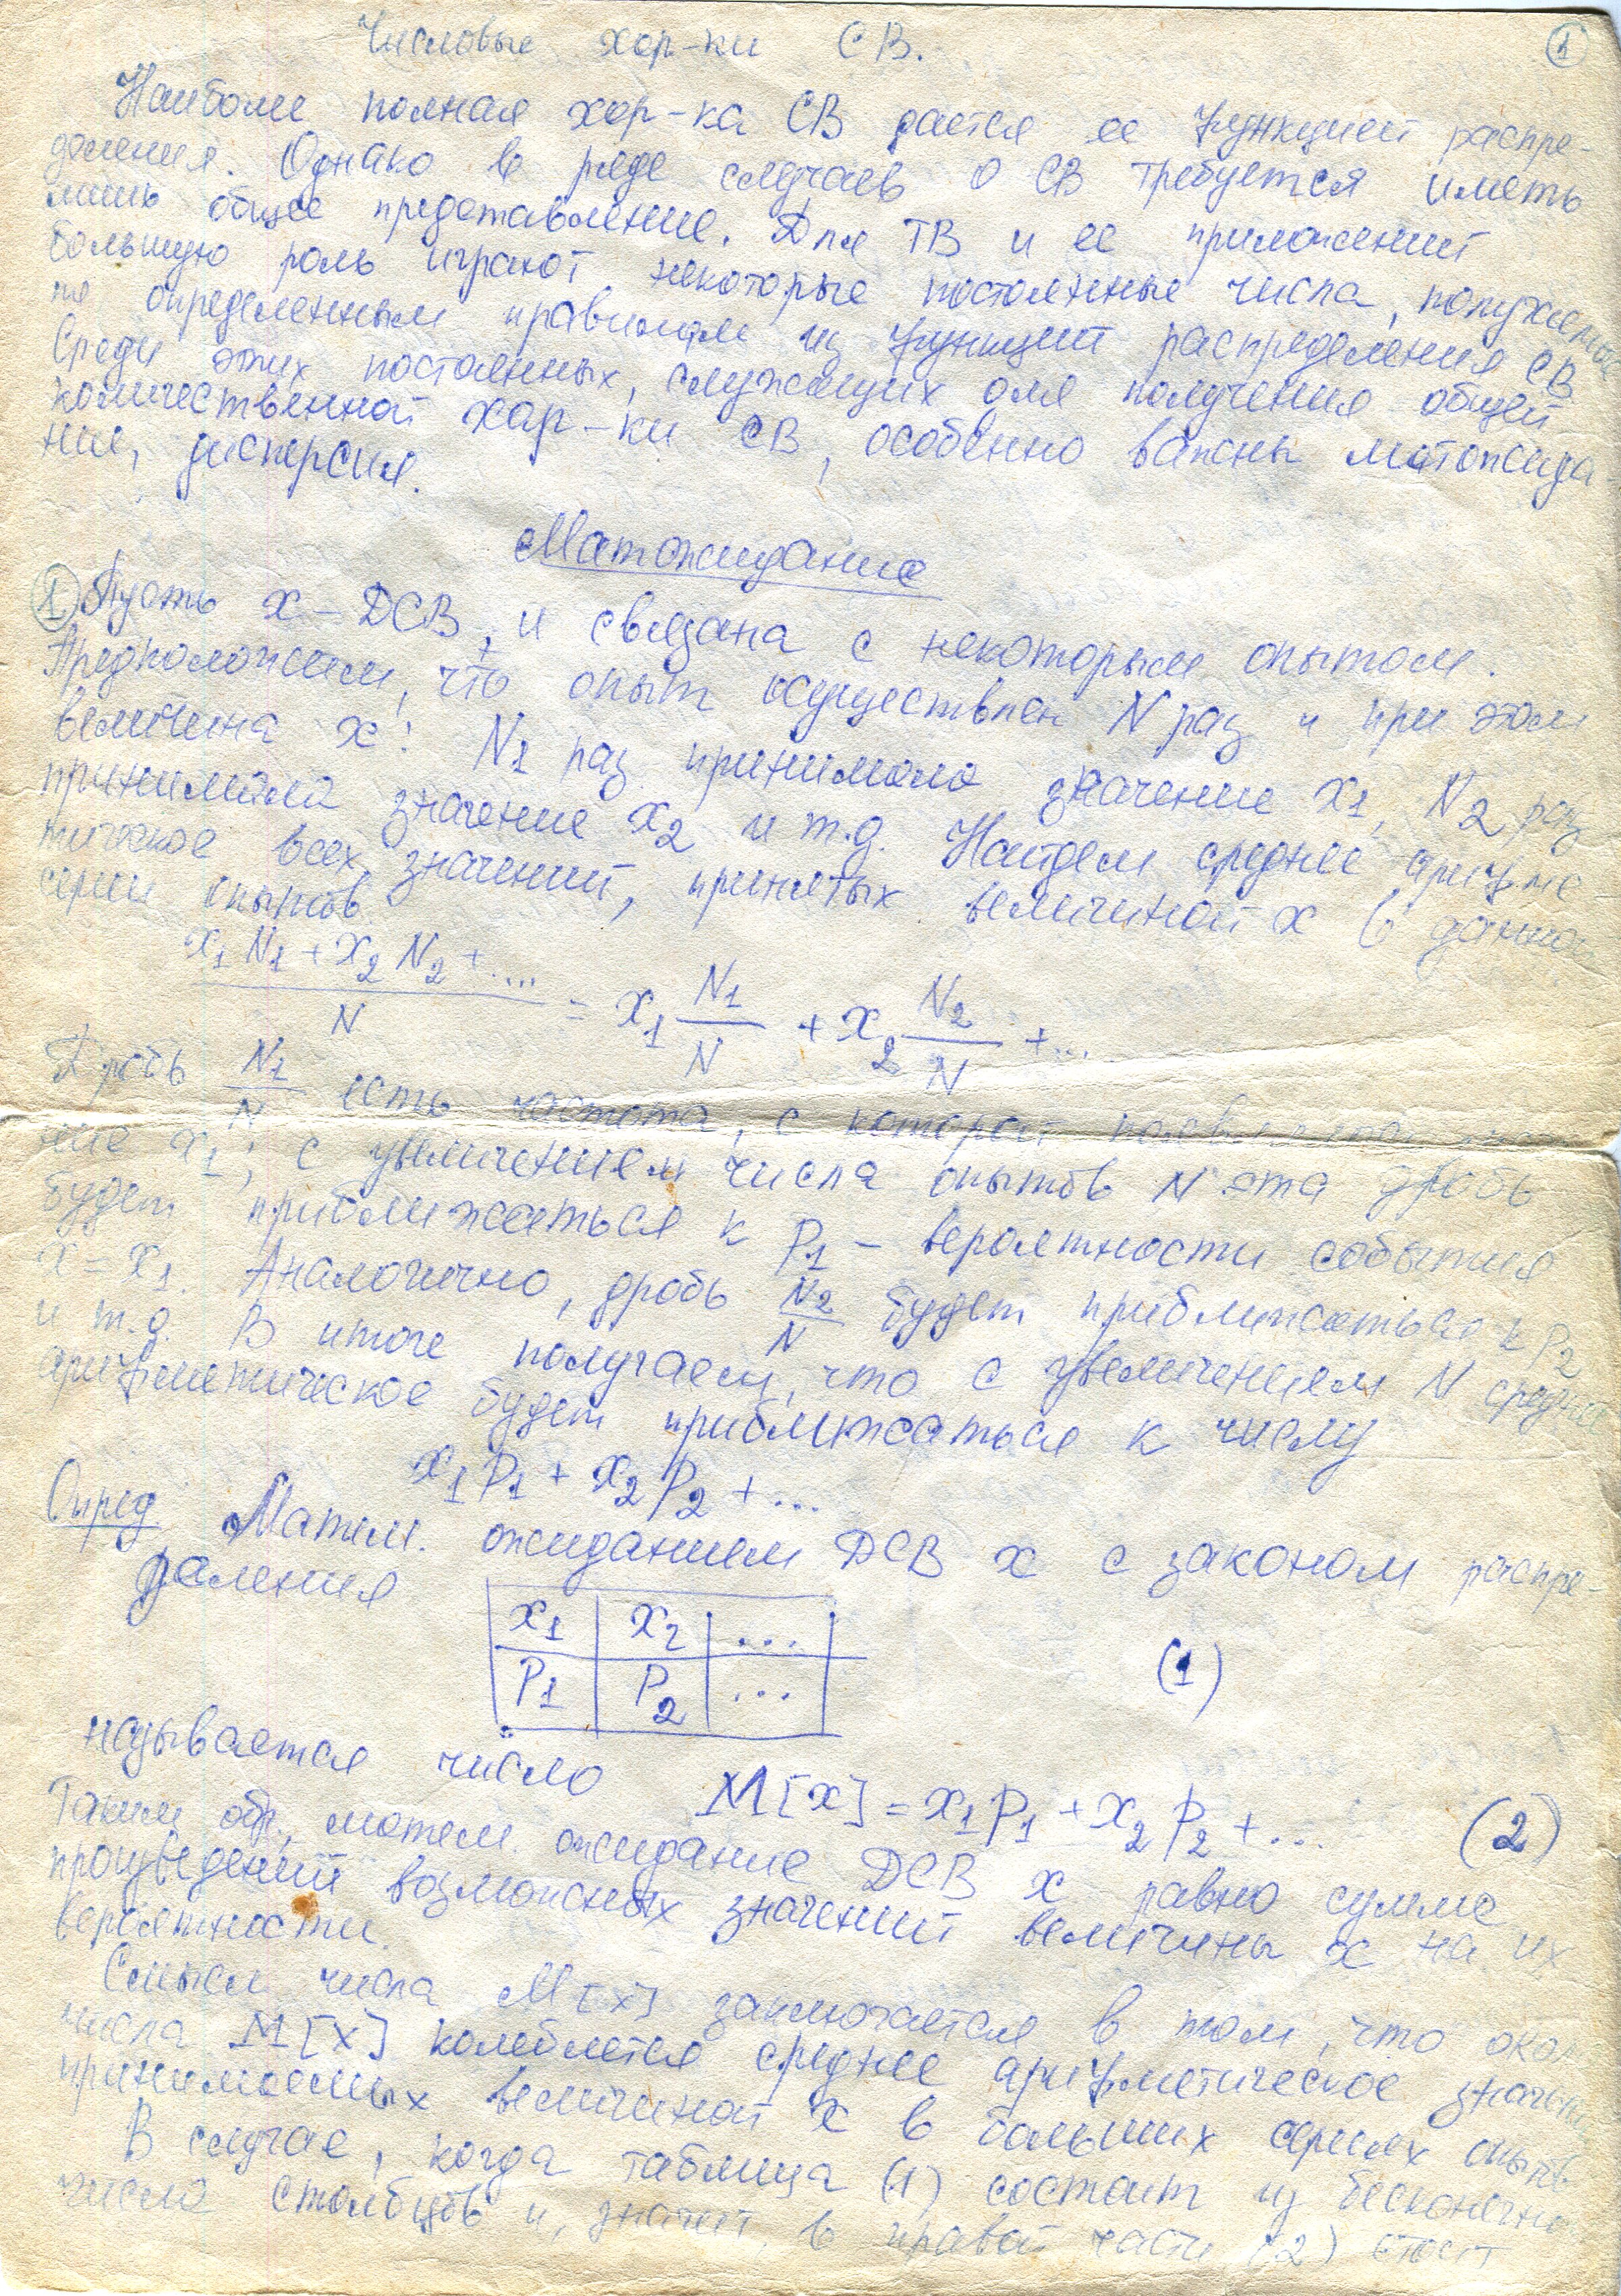 Числовые хар-ки СВ.
1
Наиболее полная хар-ка СВ дается ее функцией распре-
деления. Однако в ряде случаев о СВ требуется иметь
лишь общее представление. Для ТВ и ее приложений
большую роль играют некоторые постоянные числа, полученные
по определенным правилам из функций распределения СВ
Среди этих постоянных, служащих для получения общей
количественной хар-ки СВ, особенно важны матожида-
ния, дисперсия.
Матожидание
1 Пусть x – ДСВ, и связана с некоторым опытом.
Предположим, что опыт осуществлен N раз и при этом
величина x: N1 раз принимала значение x1, N2 раз
принимала значение x2 и т.д. Найдем среднее арифме-
тическое всех значений, принятых величиной x в данной
серии опытов
(x1 N1 + x2 N2 + ...)/N = x1 N1/N + x2 N2/N + ...
Дробь N1/N есть частота, с которой
ние x1; с увеличением числа опытов N эта дробь
будет приближаться к P1 – вероятности события
x = x1. Аналогично, дробь N2/N будет приближаться к P2
и т.д. В итоге получаем, что с увеличением N среднее
арифметическое будет приближаться к числу
x1 P1 + x2 P2 + ...
Опред. Матем. ожиданием ДСВ x с законом распре-
деления
x1 | x2 | ...
P1 | P2 | ...
(1)
называется число M[x] = x1 P1 + x2 P2 + ... (2)
Таким обр., матем. ожидание ДСВ x равно сумме
произведений возможных значений величины x на их
вероятности.
Смысл числа M[x] заключается в том, что около
числа M[x] колеблется среднее арифметическое значений
принимаемых величиной x в больших сериях опытов
В случае, когда таблица (1) состоит из бесконечного
числа столбцов и, значит, в правой части (2) стоит